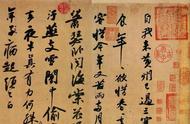 自我來黃州已過三寒
食年〻欲惜春〻去不
容惜今年又苦雨兩月秋
蕭瑟卧聞海棠花泥
汙燕支雪闇中偷負
去夜半真有力何殊
年子病起頭已白